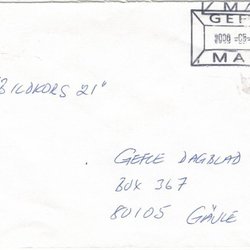 MA
GEFL
2008-05-
MA
"BILDKORS 21"
GEFLE DAGBLAD
BOX 367
80105 GÄVLE